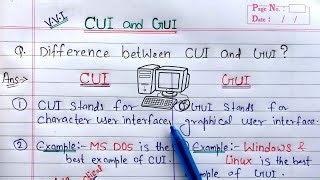 V.V.I
CUI and GUI
Page No.:
Date: / /
Q. Difference between CUI and GUI?
Ans:-
CUI
GUI
① CUI stands for
character user interface.
② Example:- MS DOS is the
best example of CUI.
① GUI stands for
graphical user interface.
② Example:- Windows &
Linux is the best
example of GUI.